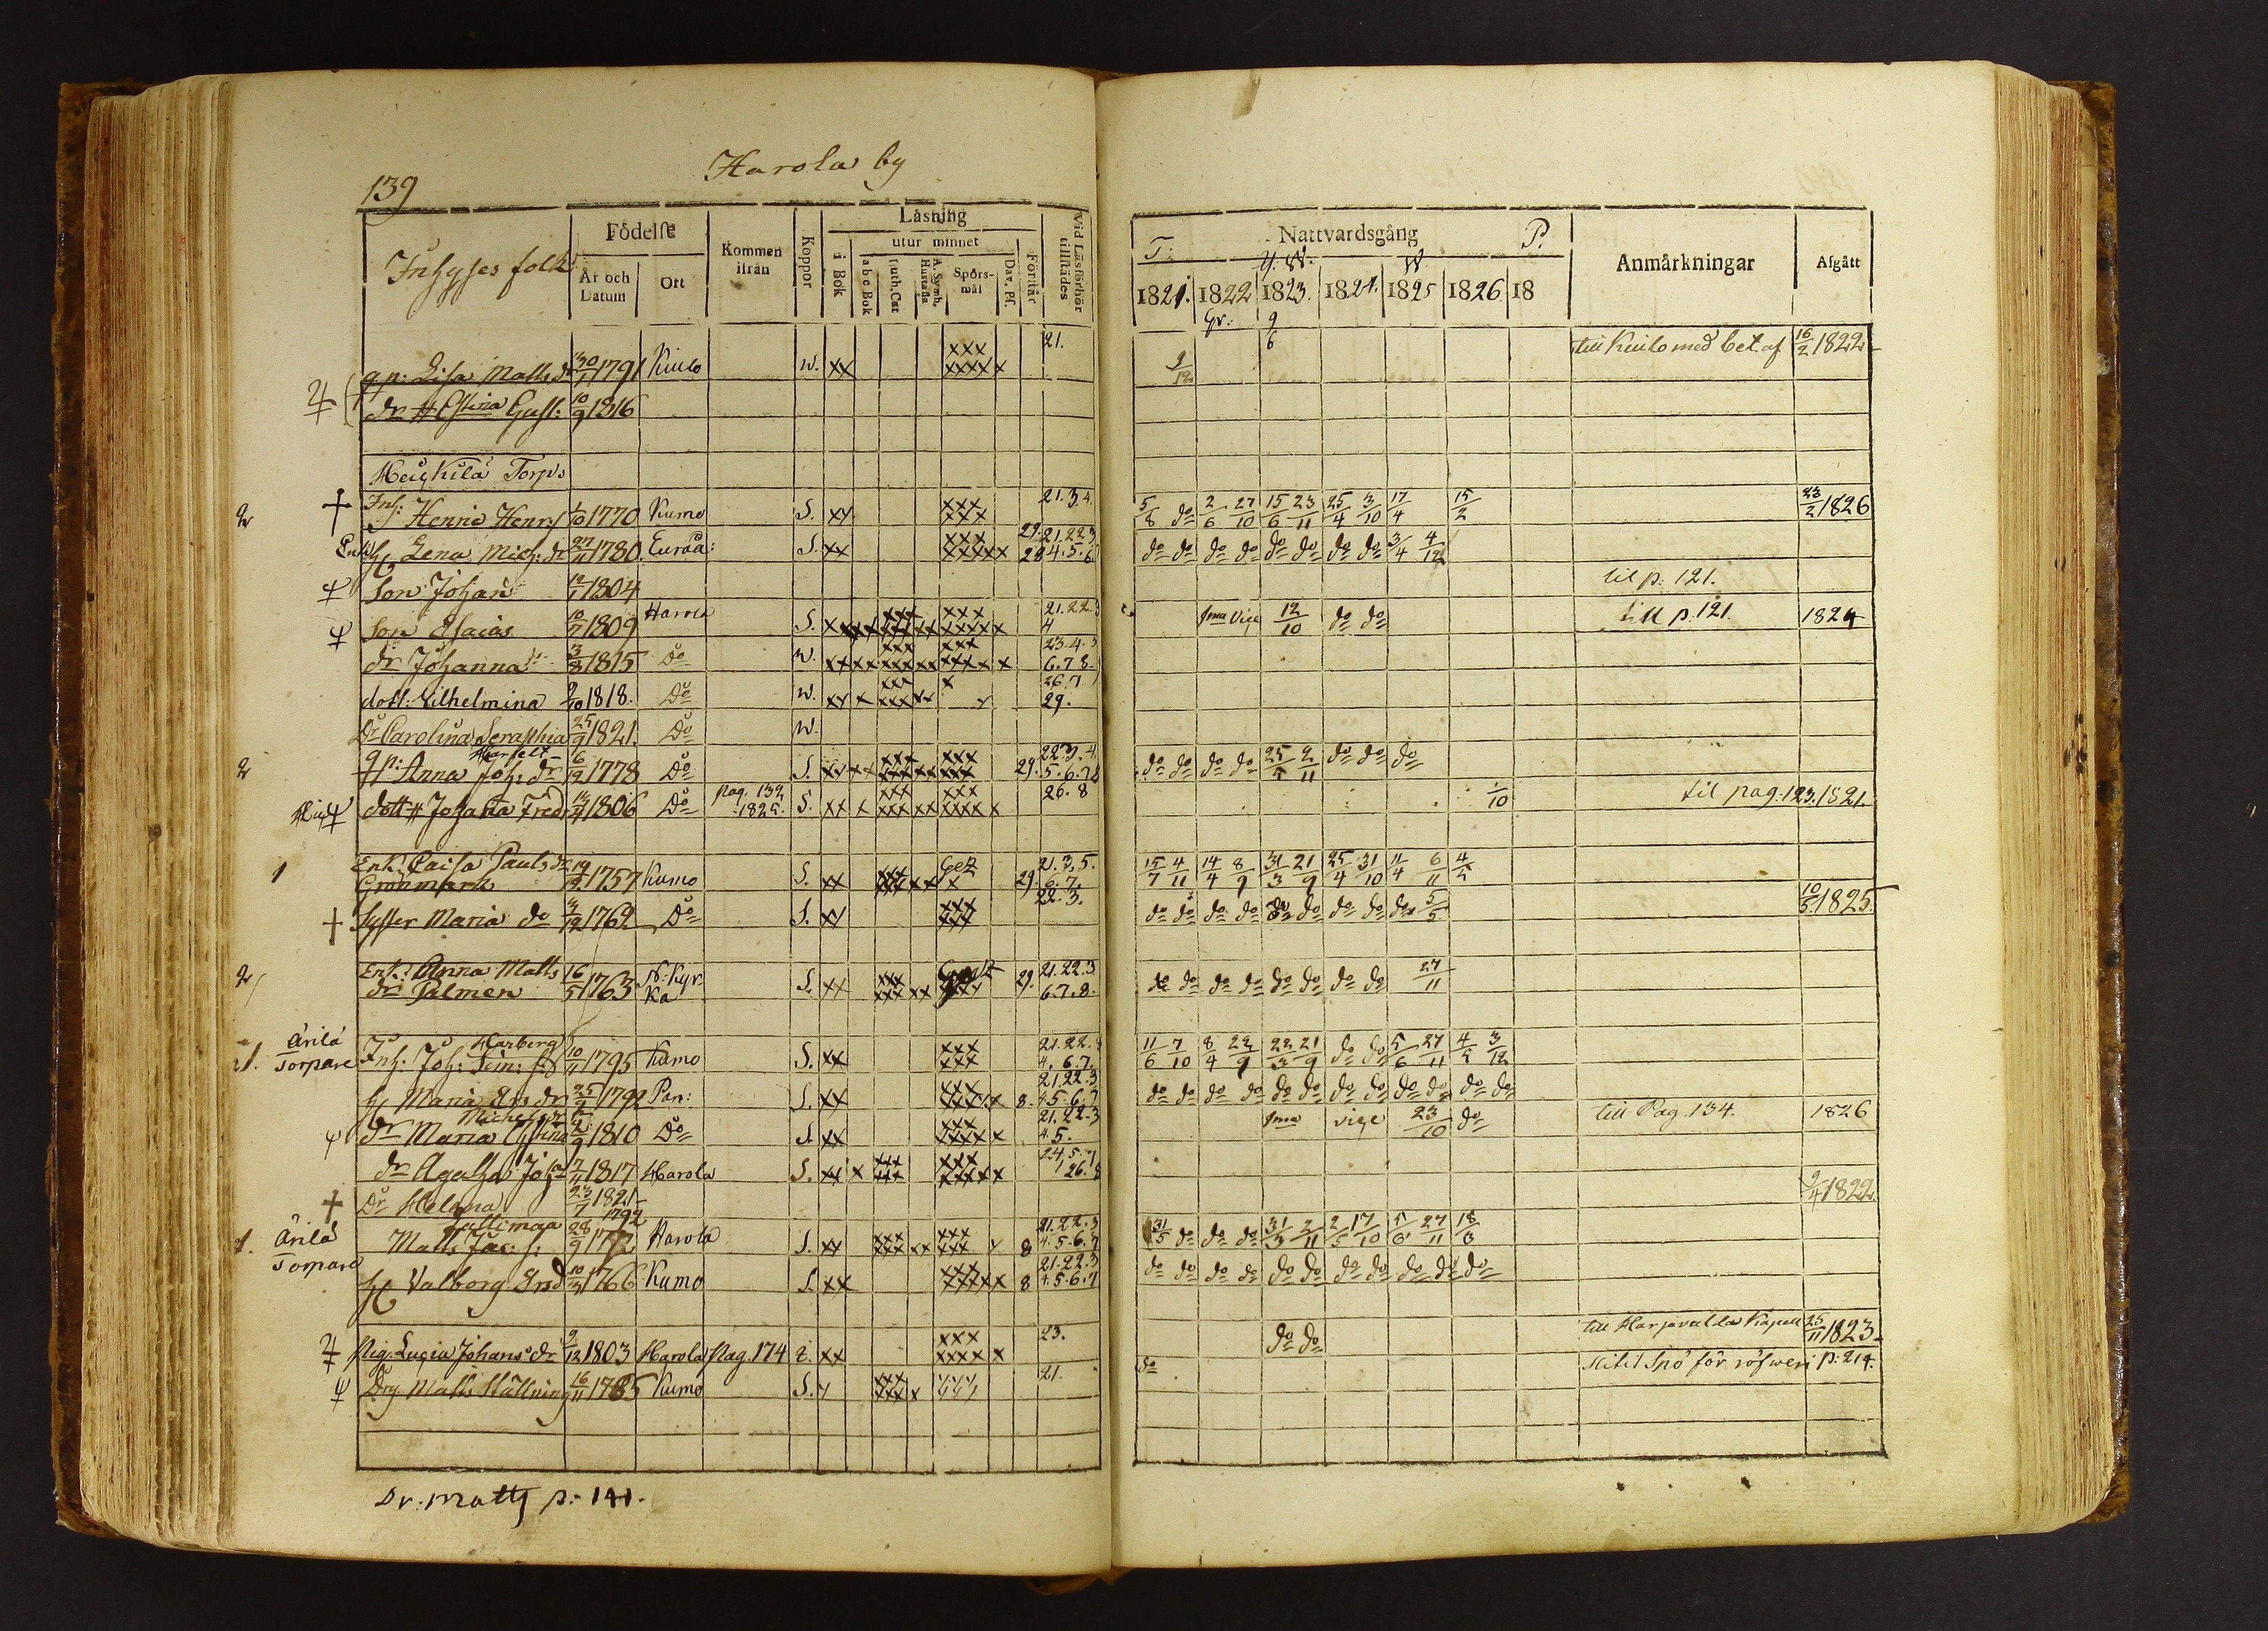 139
Harola by
Inhyses folk
Födelse
År och Datum
Ort
Kommen ifrån
Koppor
Läsning
i Bok
utur minnet
a b c Bok
Luth. Cat
A. Symb. Hustafla
Spörs-mål
Dav. Ps.
Förstår
Vid Läsförhör tillstädes
T: Nattvardsgång P.
1821. 1822 1823. 1824. 1825 1826 18
Anmärkningar
Afgått
qp: Lisa Matts dr 30/1 1791 Kiulo W. xx xxx xxxxx 21. 9/12 till Kiulo med bet. af 16/2 1822
dr Stina Gust: 10/9 1816
Heickilä Torp
2 † Inh: Henric Henrs 1/10 1770 Kumo S. xx xxx xxx 21.3.4. 5/8 do 2/6 27/10 15/6 23/11 25/4 3/10 17/4 15/2 23/2 1826
Enk: H Lena Mich: dr 27/11 1780. Euraå: S. xx xxx xxxxx 29. 28 21.22.3 4.5.6 do do do do do do do do 3/4 4/12
Son Johan 12/1 1804 til p: 121.
Son Esaias 10/7 1809 Harola S. 21.22.3 4 1ma vice 12/10 do do till p. 121. 1824
dr Johanna 3/8 1815 Do W. 23.4.3 6.7.8.
dott: Vilhelmina 2/10 1818. Do W. 26.7 29.
Dr Carolina Seraphia 25/9 1821. Do W.
2 qp: Anna Joh: dr 6/12 1778 Do S. 29. 22.3.4 5.6.7.8 do do do do 25/5 2/11 do do do
dott Johanna Fred: 14/4 1806 Do pag. 132 1825. S. 26.8 1/10 til pag. 123. 1821.
1 Enk: Caisa Pauls dr Grönmark 19/12 1757 Kumo S. 29. 21.3.5. 6.7. 15/7 4/11 14/4 8/9 31/3 21/9 25/4 31/10 11/4 6/11 4/5
† Syster Maria do 3/12 1762 Do S. xx xxx xxx 22.3. do do do do do do do do do 5/5 10/5 1825.
2 Enk: Anna Matts dr Palmen 16/5 1763 N: Kyrka S. xx 29. 21.22.3 6.7.8. do do do do do do do do 27/11
1. Ärilä Torpare Inh: Joh: Sim: s. Harberg 10/11 1795 Kumo S. xx xxx xxx 21.22.3 4.6.7. 11/6 7/10 8/4 22/9 22/3 21/9 do do 5/6 27/11 4/5 3/12
H Maria Ers dr 25/9 1792 Pan: S. xx xxx xxxxx 8. 21.22.3 4.5.6.7 do do do do do do do do do do do do
dr Maria Michelsdr 2/9 1810 Do S. xx xxx xxxxx 21.22.3 4.5. 1ma vice 23/10 do till Pag. 134. 1826
dr Agatha Joh: 7/11 1817 Harola S. xx x xxx xxx xxx xxxxx 24.5.7 26.8
† Dr Helena 23/7 1821 9/4 1822.
1. Ärilä Torpare Matts Jac: s. Tattimaa 28/9 1772 1792 Harola S. xx 8 21.22.3 4.5.6.7 31/5 do do do 31/3 2/11 2/5 17/10 5/6 27/11 18/6
H Valborg Ers d 10/3 1766 Kumo S. xx xxx xxxxx 8 21.22.3 4.5.6.7 do do do do do do do do do do do
Pig. Lucia Johans dr 9/12 1803 Harola Pag. 174 xx xxx xxxxx 23. do do till Harjavalda Kapell 25/11 1823
Drg Matts Hällning 16/11 1785 Kumo S. 21. do slitit Spö för röfweri p: 214.
Dr: Matts p: 141.